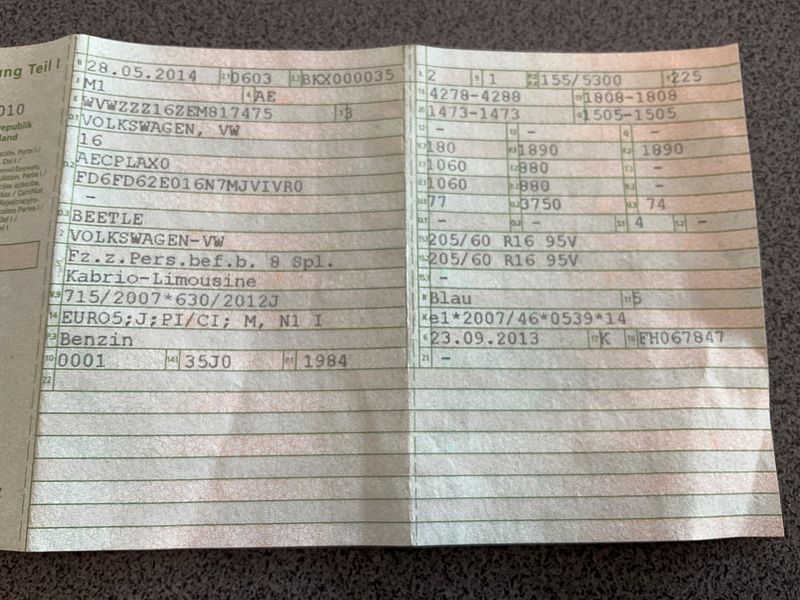 ung Teil I
010
republik
land
B 28.05.2014 2.1 0603 2.2 BKX000035
J M1 4 AE
E WVWZZZ16ZEM817475 3 3
D.1 VOLKSWAGEN, VW
16
D.2 AECPLAX0
FD6FD62E016N7MJVIVR0
-
D.3 BEETLE
2 VOLKSWAGEN-VW
5 Fz.z.Pers.bef.b. 8 Spl.
Kabrio-Limousine
V.9 715/2007*630/2012J
14 EURO5;J;PI/CI; M, N1 I
P.3 Benzin
10 0001 14.1 35J0 P.1 1984
22
L 2 9 1 155/5300 T 225
18 4278-4288 19 1808-1808
20 1473-1473 G 1505-1505
12 - 13 - Q -
V.7 180 F.1 1890 F.2 1890
7.1 1060 7.2 880 7.3 -
8.1 1060 8.2 880 8.3 -
U.1 77 U.2 3750 U.3 74
O.1 - O.2 - S.1 4 S.2 -
15.1 205/60 R16 95V
15.2 205/60 R16 95V
15.3 -
R Blau 11 5
K e1*2007/46*0539*14
6 23.09.2013 17 K 16 FH067847
21 -